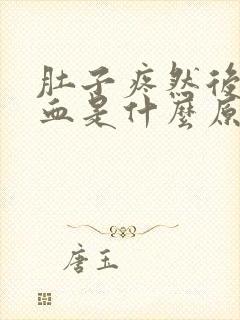 肚子疼然後
血是什麼原
唐玉